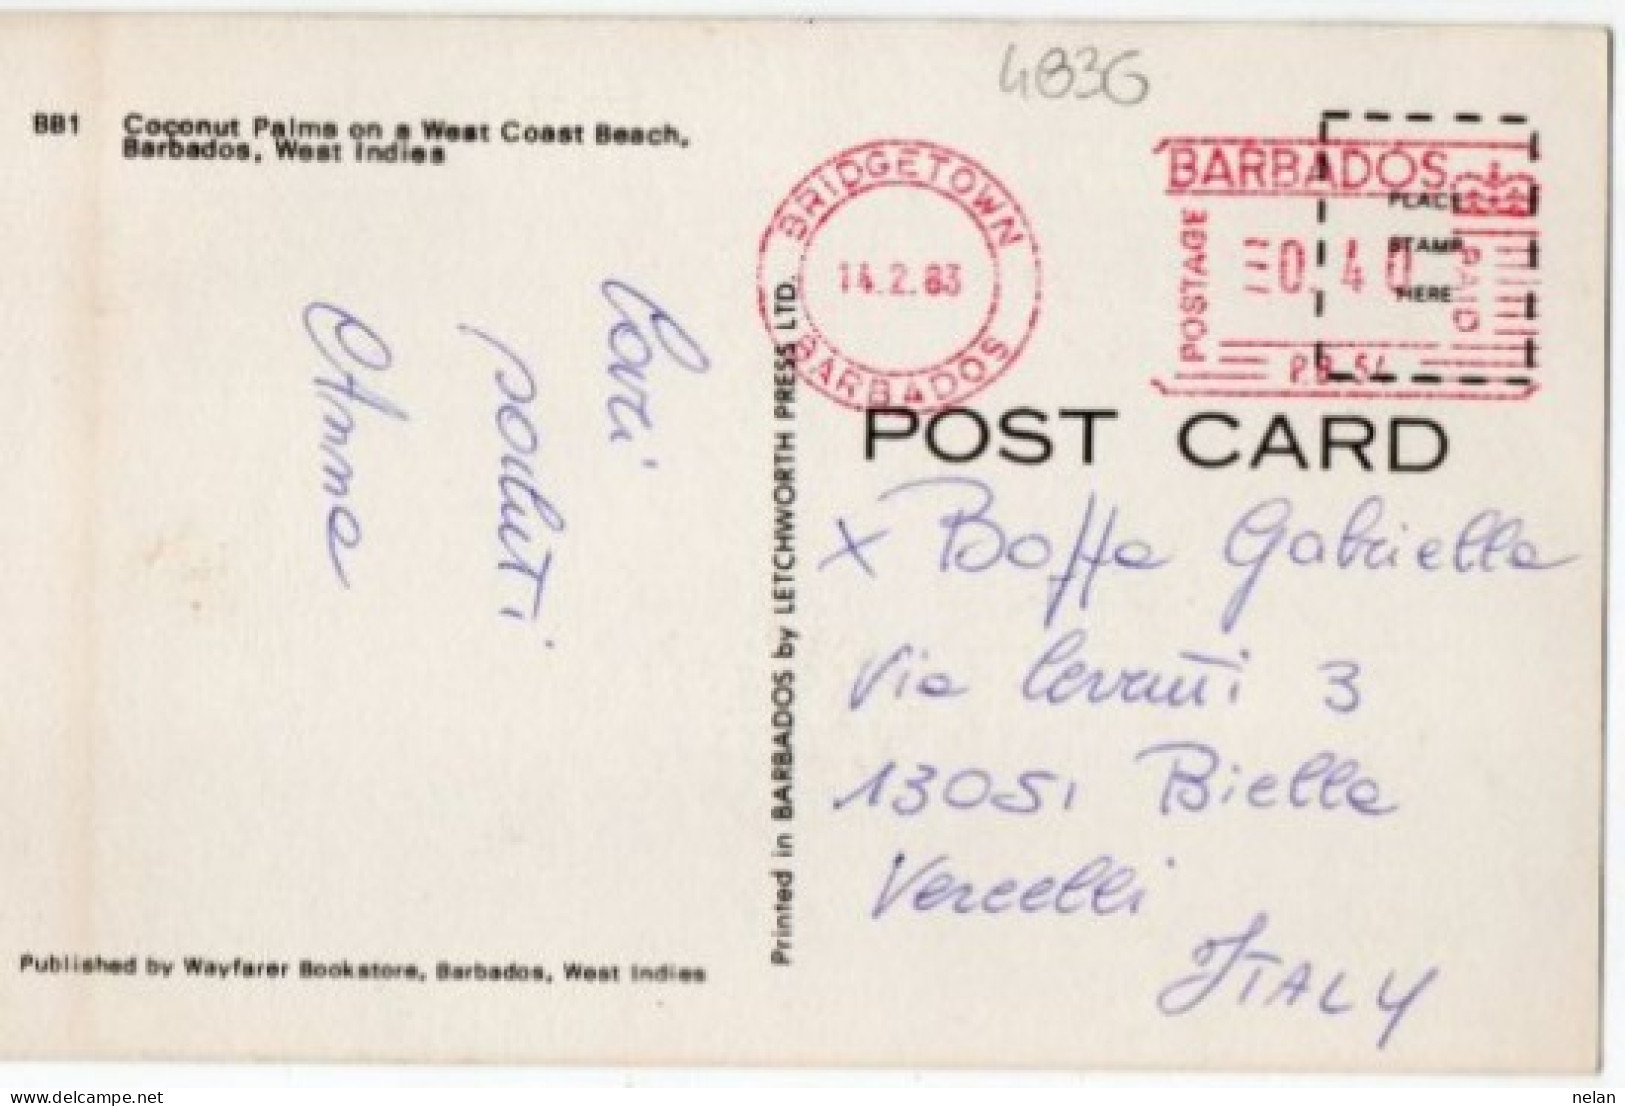 4836
BB1 Coconut Palms on a West Coast Beach,
Barbados, West Indies
BRIDGETOWN
14.2.83
BARBADOS
BARBADOS
POSTAGE
=0.40
PAID
P.B.54
PLACE
STAMP
HERE
POST CARD
Printed in BARBADOS by LETCHWORTH PRESS LTD.
saluti
Anna
x Boffa Gabriella
Via 3
13051 Biella
Vercelli
ITALY
Published by Wayfarer Bookstore, Barbados, West Indies
nelan